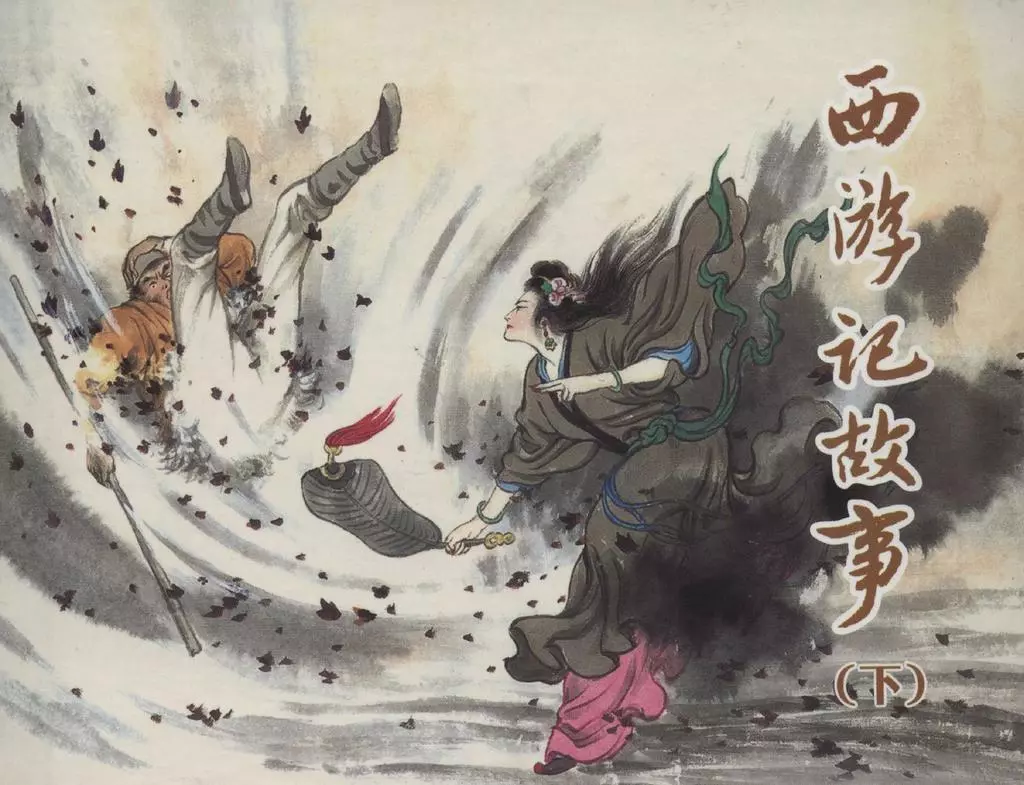 西游记故事
(下)